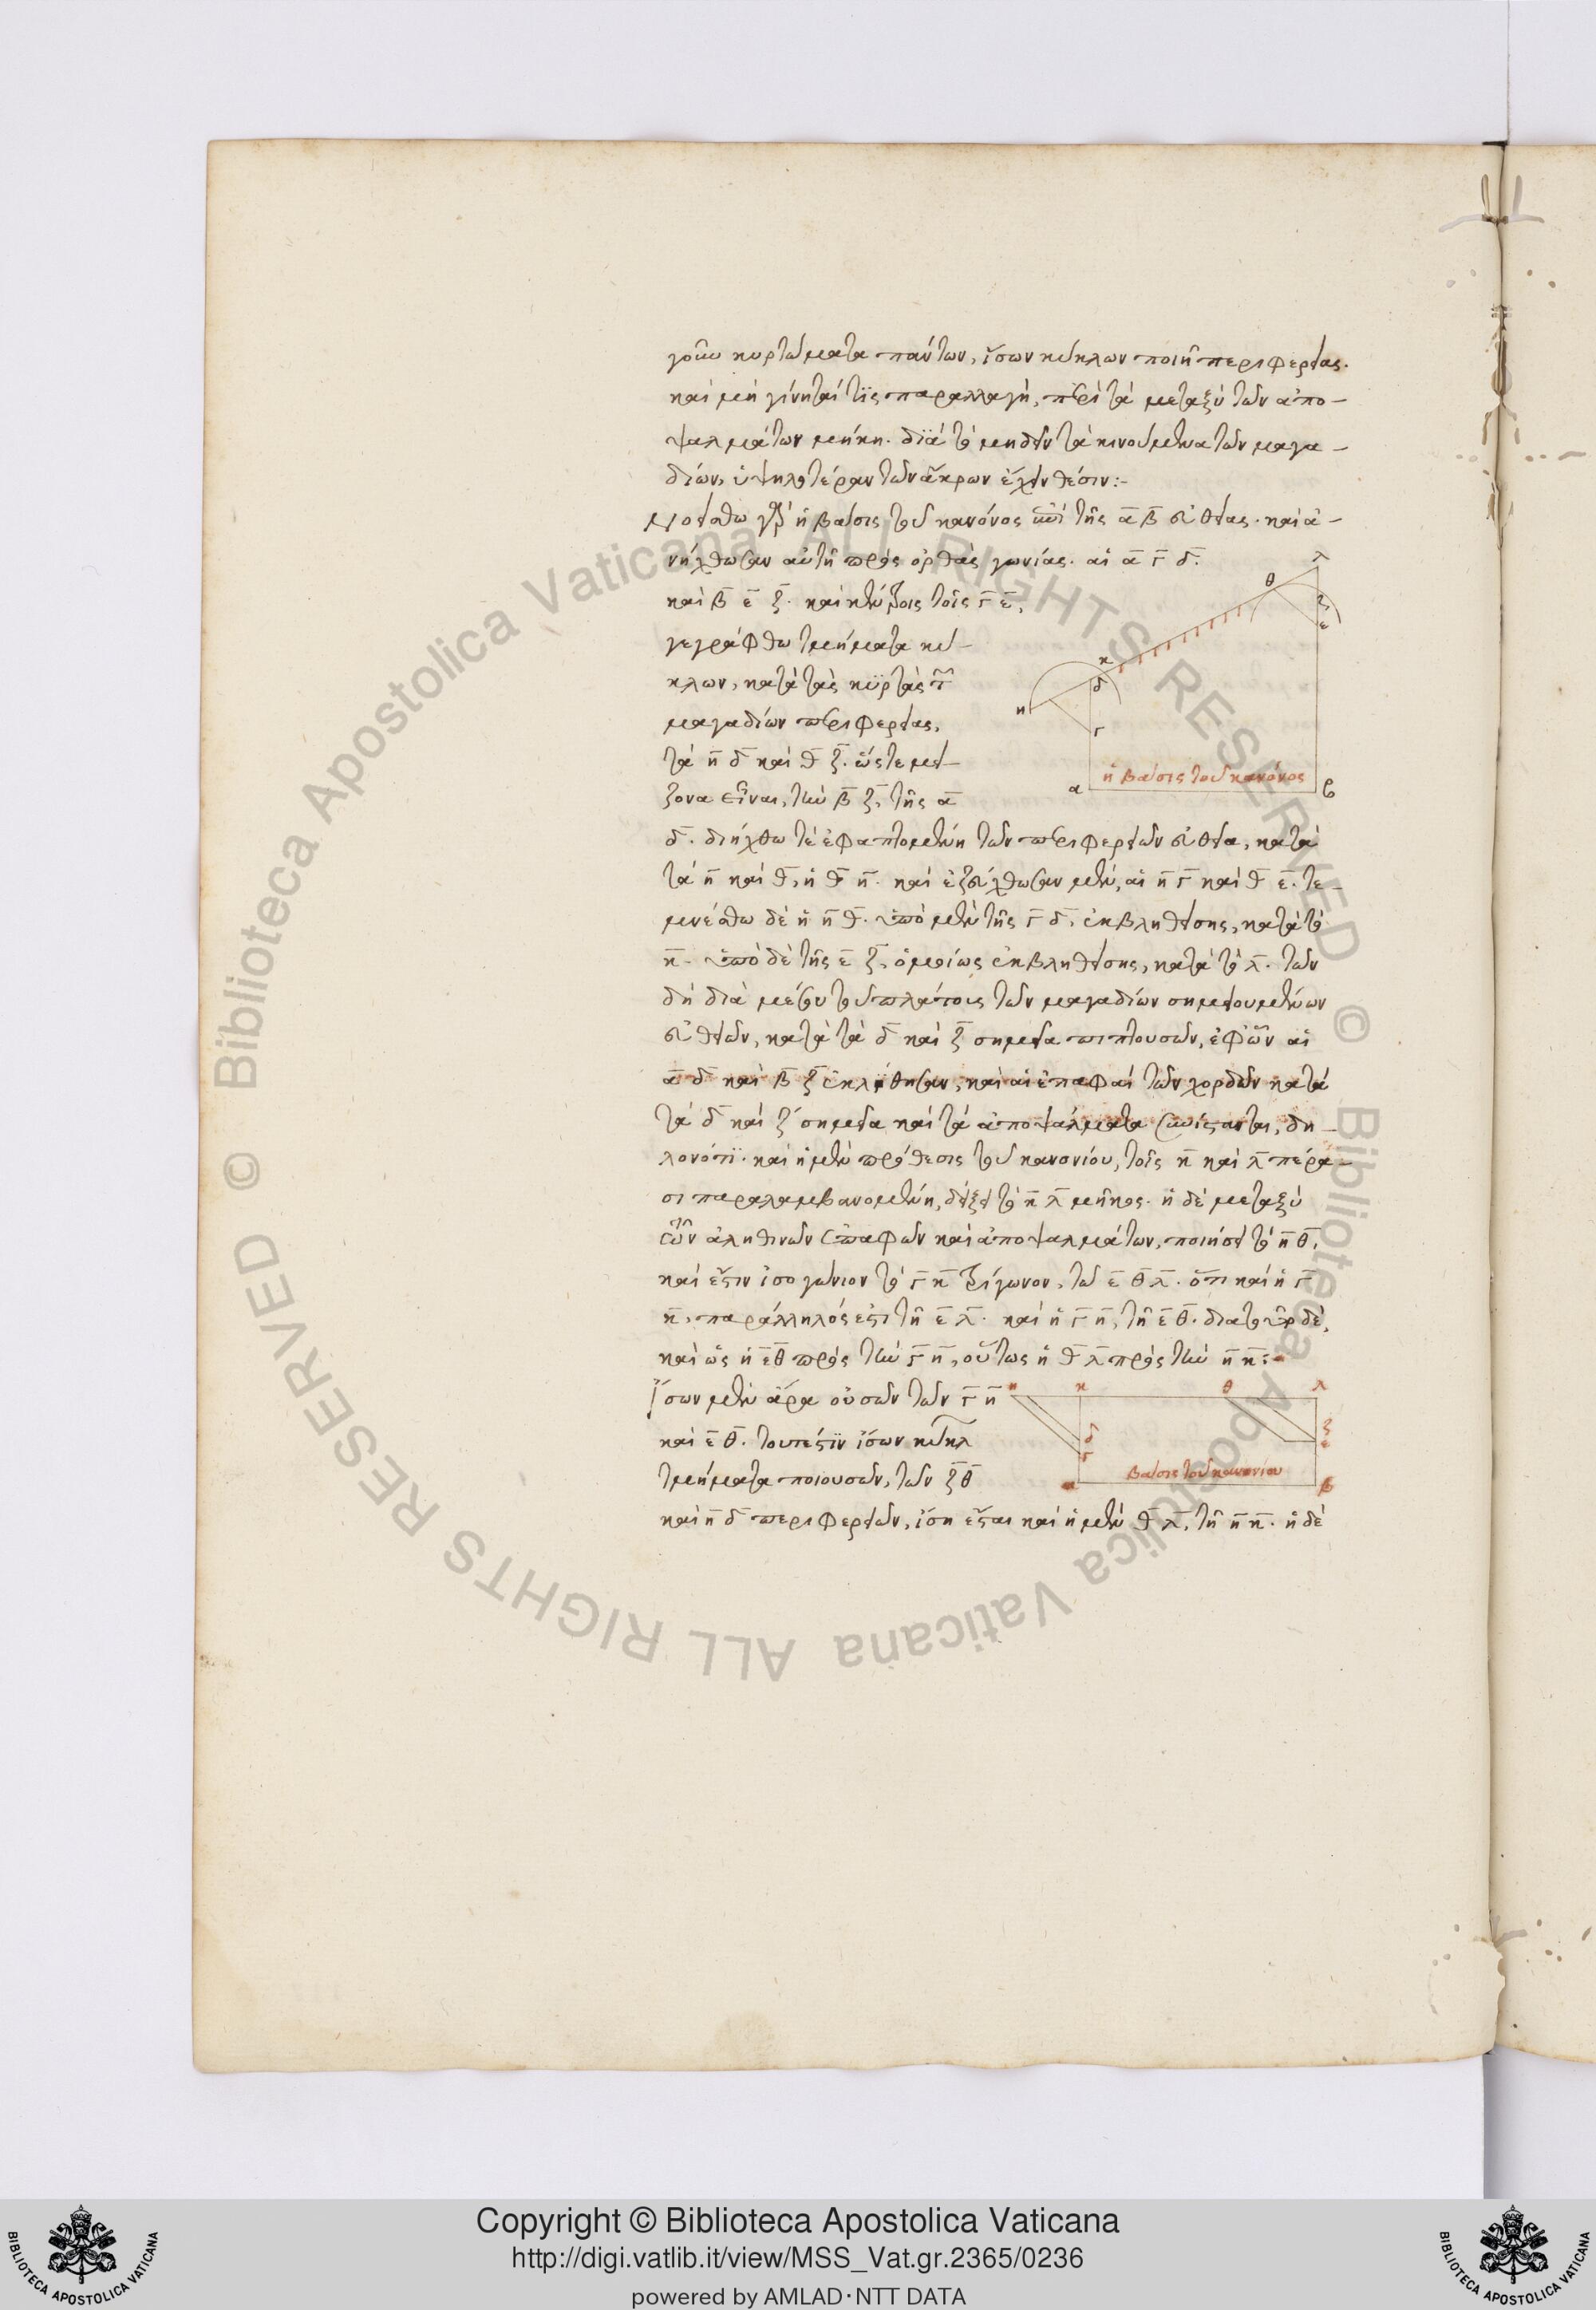 γοῦν κυρτώματα πάντων, ἴσων κύκλων ποιῇ περιφερείας.
καὶ μὴ γίνηταί τϊς παραλλαγὴ, περὶ τὰ μεταξὺ τῶν ἀπο-
ψαλμάτων μήκη. δϊὰ τὸ μηδὲν τὰ κινούμενα τῶν μαγα-
δίων, ὑψηλοτέραν τῶν ἄκρων ἔχειν θέσιν:-
Νοείσθω γὰρ ἡ βάσις τοῦ κανόνος ἐπὶ τῆς α β εὐθείας. καὶ ἀ-
νήχθωσαν αὐτῇ πρὸς ὀρθὰς γωνίας. αἱ α γ δ.
καὶ β ε ζ. καὶ κέντροις τοῖς γ ε,
γεγράφθω τμήματα κύ-
κλων, κατὰ τὰς κϋρτὰς τῶν
μαγαδίων περιφερείας,
τὰ η δ καὶ θ ζ. ὥστε μεί-
ζονα εἶναι, τὴν β ζ, τῆς α
δ. διήχθω τὲ ἐφαπτομένη τῶν περιφερειῶν εὐθεῖα, κατὰ
τὰ η καὶ θ, ἡ θ η. καὶ ἐζεύχθωσαν μὲν, αἱ η γ καὶ θ ε. τε-
μνέσθω δὲ ἡ η θ. ὑπὸ μὲν τῆς γ δ, ἐκβληθείσης, κατὰ τὸ
κ. ὑπὸ δὲ τῆς ε ζ, ὁμοίως ἐκβληθείσης, κατὰ τὸ λ. τῶν
δὴ διὰ μέσου τοῦ πλάτους τῶν μαγαδίων σημειουμένων
εὐθειῶν, κατὰ τὰ δ καὶ ζ σημεῖα πιπτουσῶν, ἐφ' ὧν αἱ
α δ καὶ β ζ ἐκλήθησαν, καὶ αἱ ἐπαφαὶ τῶν χορδῶν κατὰ
τὰ δ καὶ ζ σημεῖα καὶ τὰ ἀποψάλματα συνίστανται, δη-
λονότϊ. καὶ ἡ μὲν πρόθεσις τοῦ κανονίου, τοῖς κ καὶ λ πέρα-
σι παραλαμβανομένη, δείξει τὸ κ λ μῆκος. ἡ δὲ μεταξὺ
τῶν ἀληθινῶν ἐπαφῶν καὶ ἀποψαλμάτων, ποιήσει τὸ η θ,
καὶ ἔστιν ἰσογώνιον τὸ γ η κ τρίγωνον, τῷ ε θ λ. ὅτι καὶ ἡ γ
κ, παράλληλός ἐστι τῇ ε λ. καὶ ἡ γ η, τῇ ε θ. διατοῦτο δὲ,
καὶ ὡς ἡ ε θ πρὸς τὴν γ η, οὕτως ἡ θ λ πρὸς τὴν η κ:-
Ἴσων μὲν ἄρα οὐσῶν τῶν γ η
καὶ ε θ. τουτέστϊν ἴσων κύκλ
τμήματα ποιουσῶν, τῶν ζ θ
καὶ η δ περιφερειῶν, ἴση ἔσται καὶ ἡ μὲν θ λ, τῇ η κ. ἡ δὲ
λ
θ
ζ
ε
κ
δ
η
γ
ἡ βάσις τοῦ κανόνος
α
β
η
κ
θ
λ
δ
γ
ζ
ε
βάσις τοῦ κανονίου
α
β
© Biblioteca Apostolica Vaticana ALL RIGHTS RESERVED © Biblioteca Apostolica Vaticana ALL RIGHTS RESERVED
Copyright © Biblioteca Apostolica Vaticana
http://digi.vatlib.it/view/MSS_Vat.gr.2365/0236
powered by AMLAD·NTT DATA
BIBLIOTECA APOSTOLICA VATICANA
BIBLIOTECA APOSTOLICA VATICANA